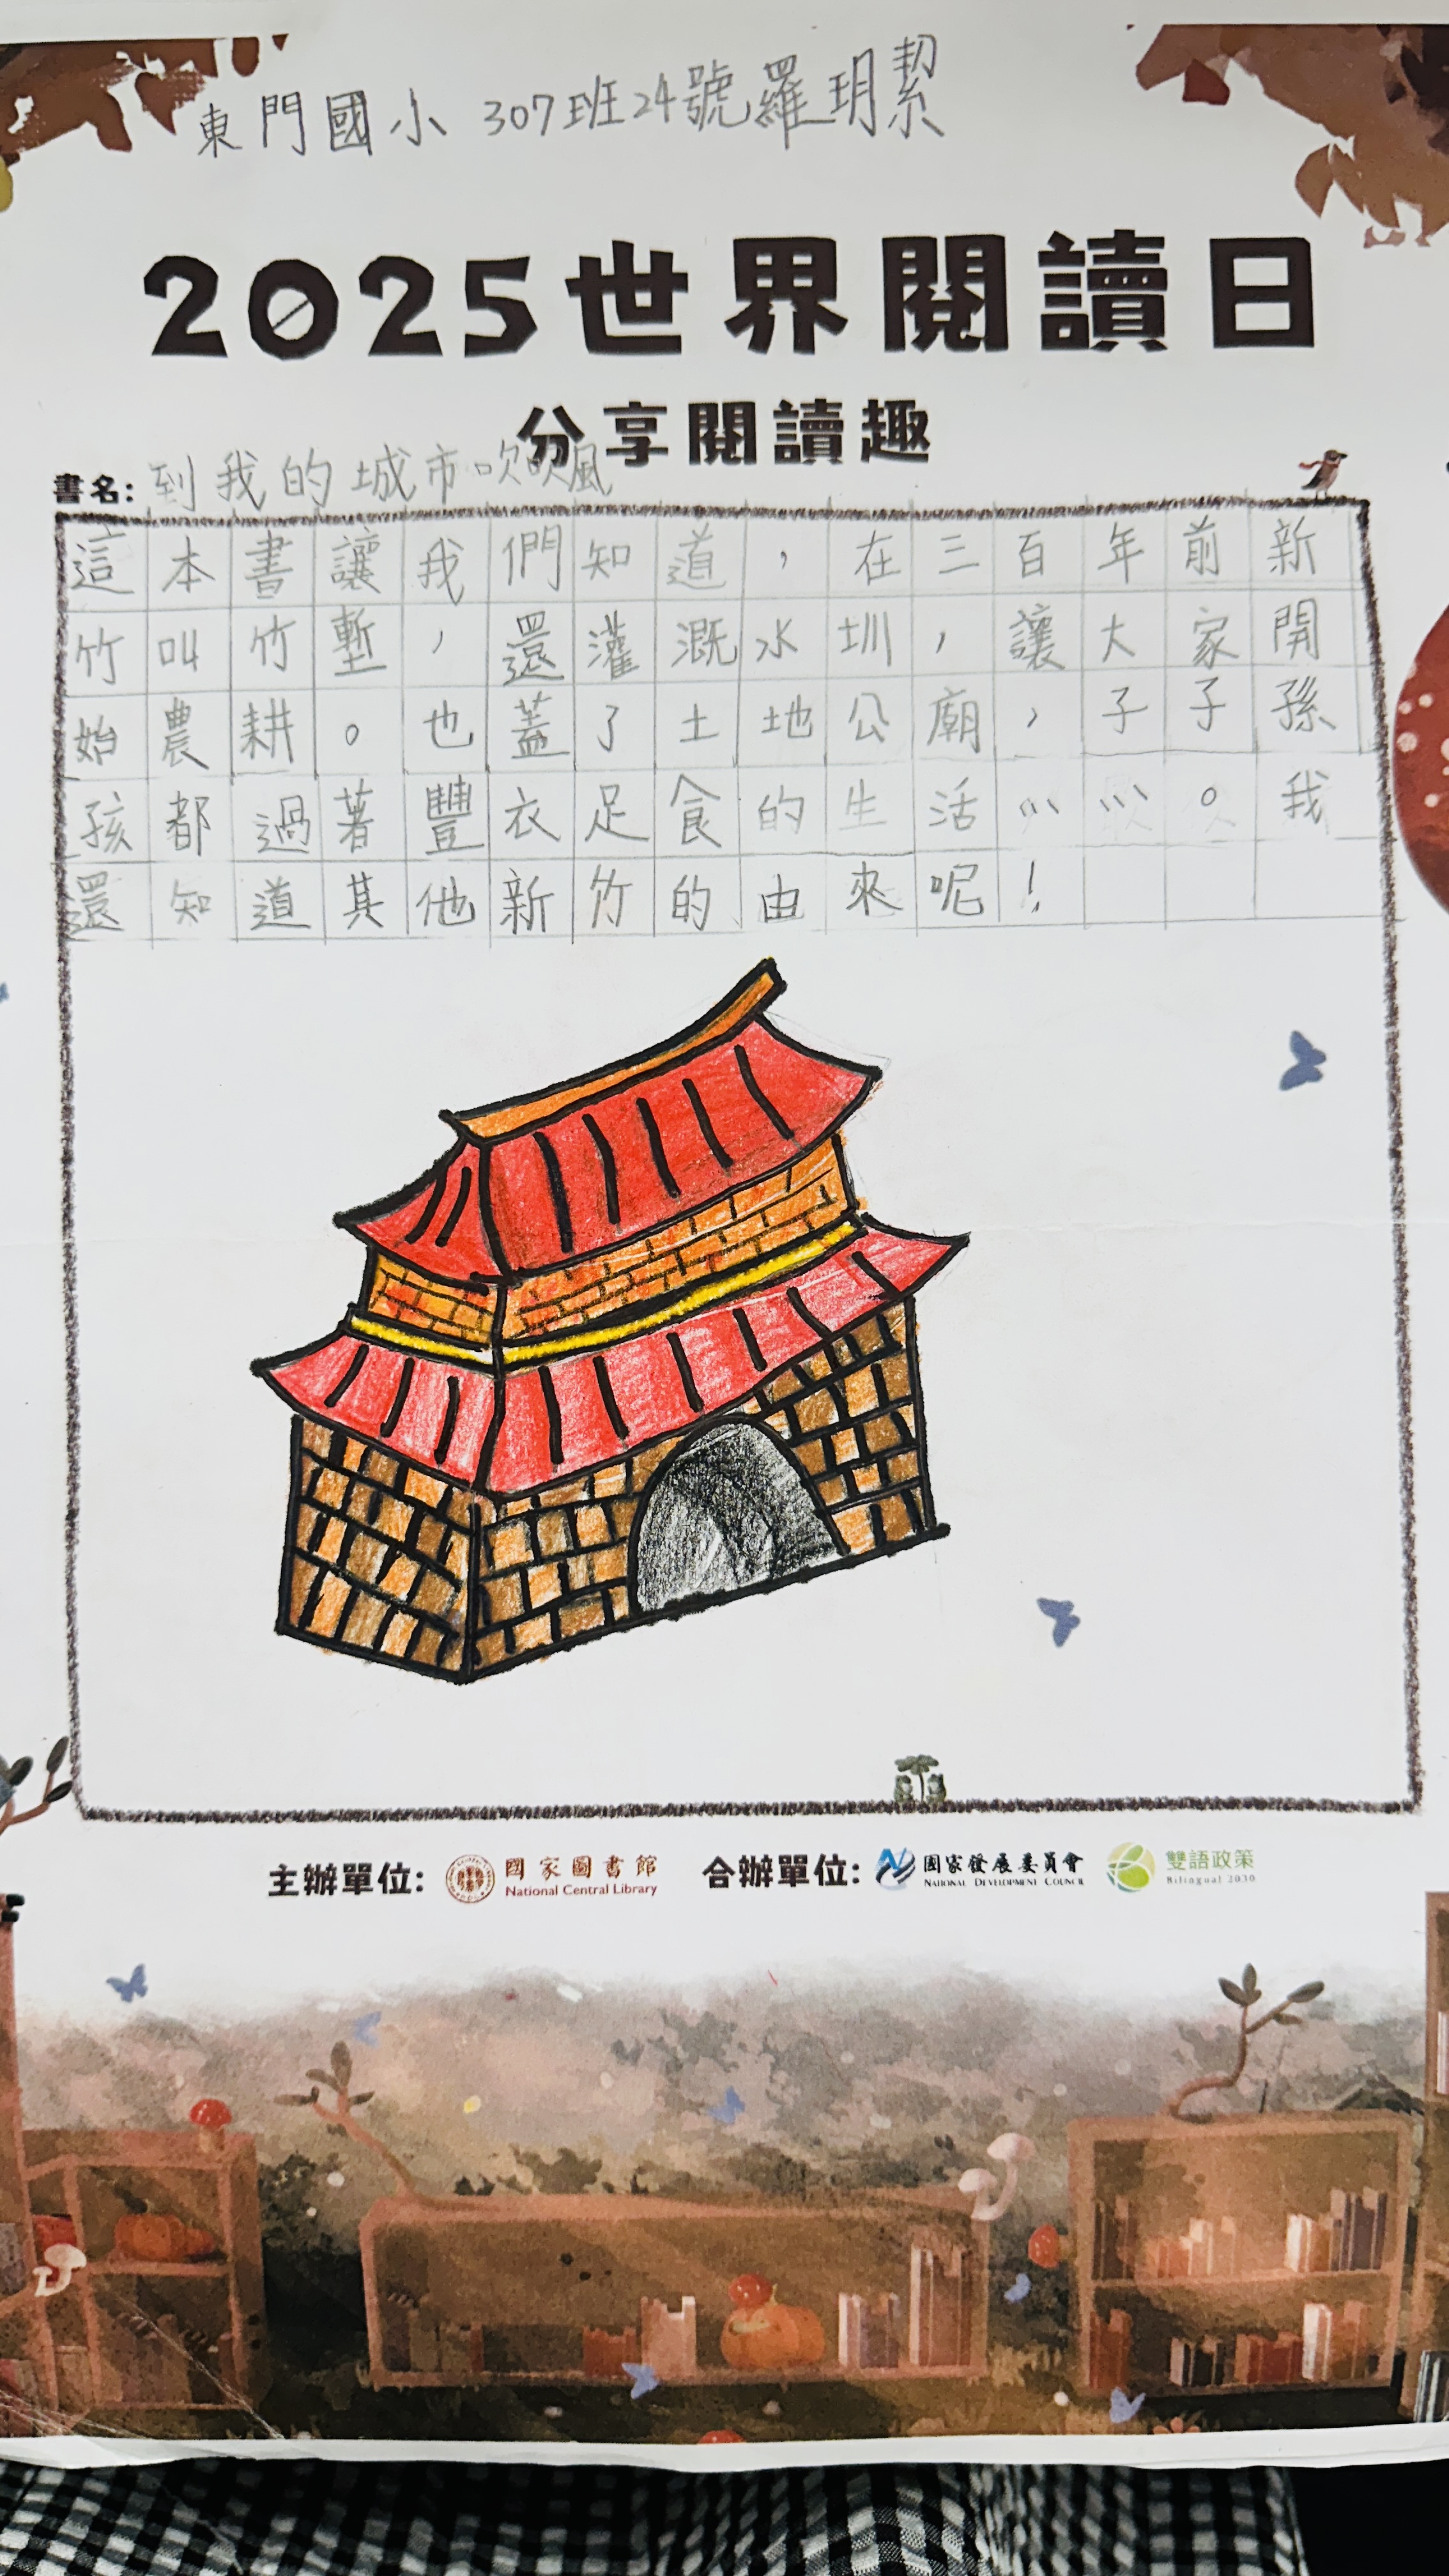 東門國小 307班24號羅玥絜
2025世界閱讀日
分享閱讀趣
書名: 到我的城市吹吹風
這本書讓我們知道，在三百年前新
竹叫竹塹，還灌溉水圳，讓大家開
始農耕。也蓋了土地公廟，子子孫
孩都過著豐衣足食的生活……。我
還知道其他新竹的由來呢!
主辦單位: 國家圖書館 National Central Library 合辦單位: 國家發展委員會 NATIONAL DEVELOPMENT COUNCIL 雙語政策 Bilingual 2030